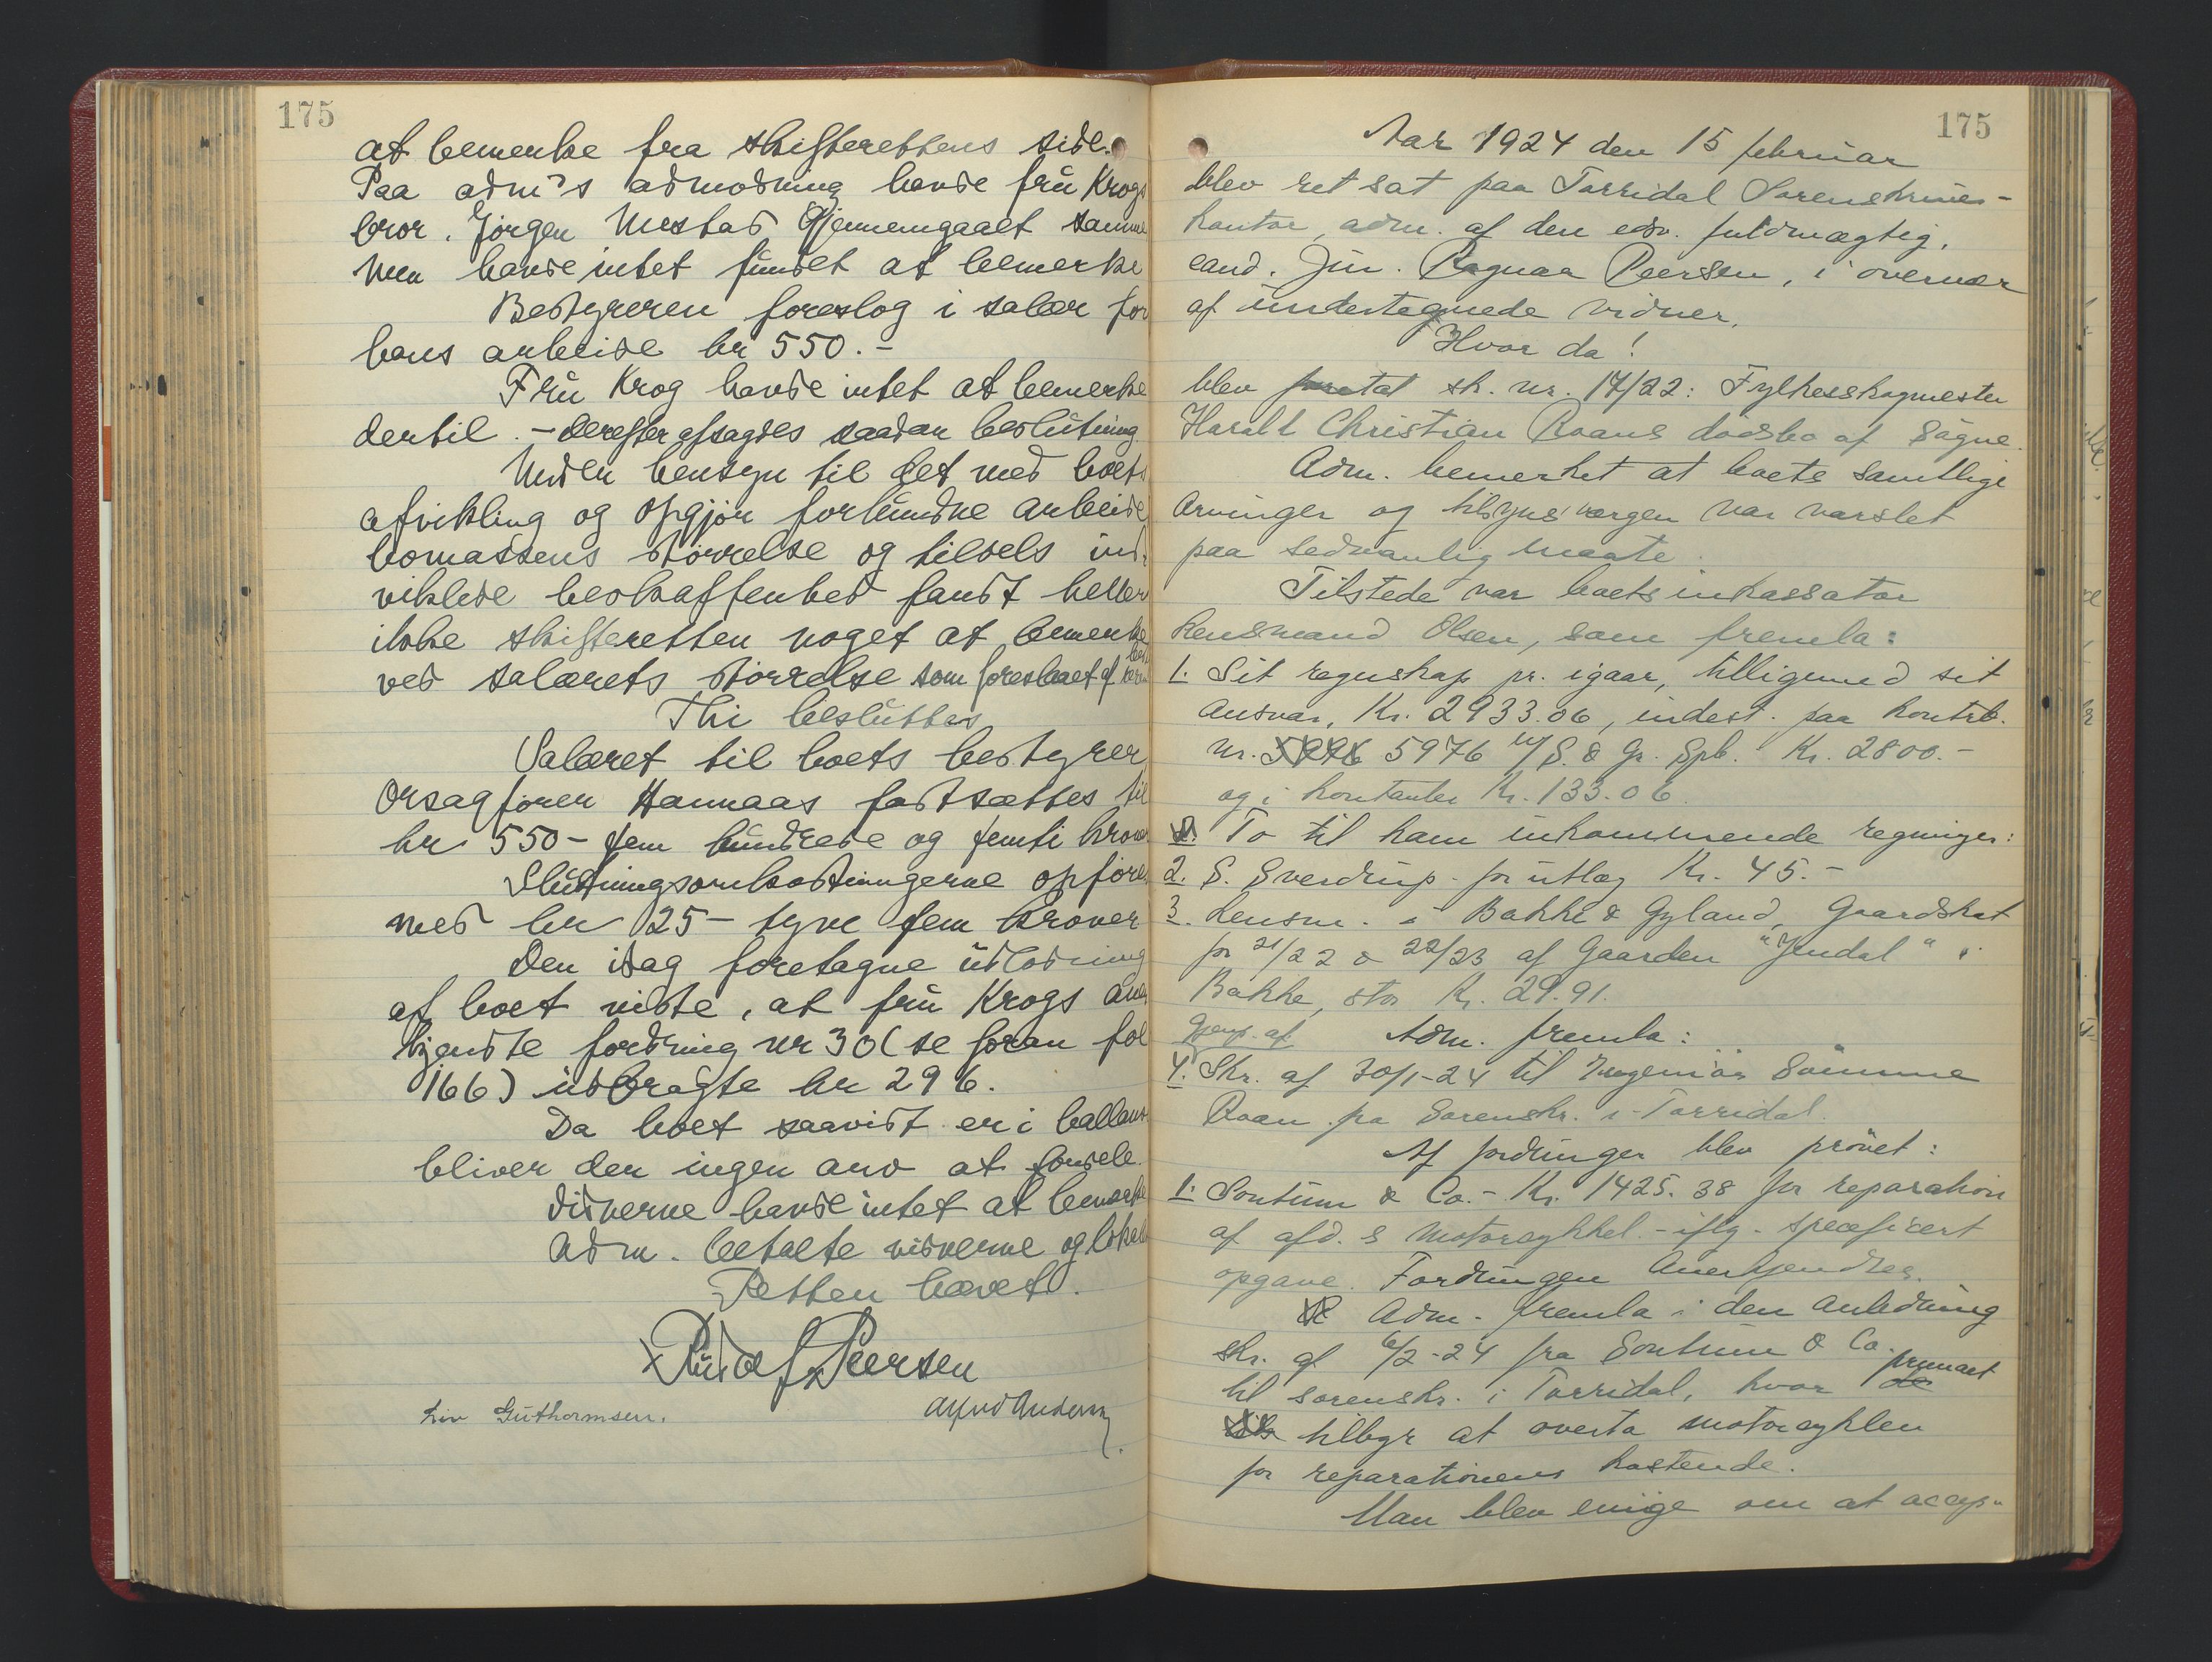 175
at bemerke fra skifterettens side.
Paa adm's admodning havde fru Krogs
bror, Jørgen Mestad gjennemgaaet samme
men havde intet fundet at bemerke
Bestyreren foreslog i salær for
hans arbeide kr 550.-
Fru Krog havde intet at bemerke
dertil. - Derefter afsagdes saadan beslutning
Under hensyn til det med boets
afvikling og opgjør forbundne arbeide
bomassens størrelse og tildels ind-
viklede beskaffenhed fandt heller
ikke skifteretten noget at bemerke
ved salærets størrelse som foreslaaet af
Thi besluttes
Salæret til boets bestyrer
Orsagfører Hannaas fastsættes til
kr 550- fem hundrede og femti kroner
Slutningsomkostningerne opføres
med kr 25- tyve fem kroner
Den idag foretagne utlodning
af boet viste, at fru Krogs aner
kjendte fordring nr 30 (se foran fol
166) utbragte kr 296.
Da boet saavidt er i ballans
bliver der ingen arv at fordele.
Vidnerne havde intet at bemerke
Adm. betalte vidnerne og lokale
Retten hævet.
Rudolf Peersen
Liv Guthormsen.
Alfred Andersen
175
Aar 1924 den 15 februar
blev ret sat paa Torridal Sorenskriver-
kontor, adm. af den edsv. fuldmægtig,
cand. jur. Ragnar Peersen, i overvær
af undertegnede vidner,
Hvor da!
blev foretat sk. nr. 17/22: Fylkesskogmester
Harald Christian Roans dødsbo af Søgne.
Adm. bemerket at boets samtlige
arvinger og tilsynsvergen var varslet
paa sedvanlig maate.
Tilstede var boets inkassator
lensmand Olsen, som fremla:
1. Sit regnskap pr. igaar, tilligemed sit
ansvar, Kr. 2933.06, indest. paa kontrb.
nr. 5976 S. & Gr. Spb. Kr. 2800.-
og i kontanter Kr. 133.06.
To til ham inkommende regninger:
2. S. Sverdrup for utlæg Kr. 45.-
3. Lensm. i Bakke & Gyland, Gaardskat
for 21/22 & 22/23 af Gaarden "Jendal" i
Bakke, stor Kr. 29.91.
Gjenp. af Adm. fremla:
4. Skr. af 30/1-24 til Ingeniør Sømme
Roan fra Sorenskr. i Torridal.
Af fordringer blev prøvet:
1. Sontum & Co. - Kr. 1425.38 for reparation
af afd.s motorcykkel - iflg. specificert
opgave. Fordringen anerkjendtes.
Adm. fremla i den anledning
skr. af 6/2-24 fra Sontum & Co.
til sorenskr. i Torridal, hvor firmaet
tilbyr at overta motorcyklen
for reparationens kostende.
Man blev enige om at accep-